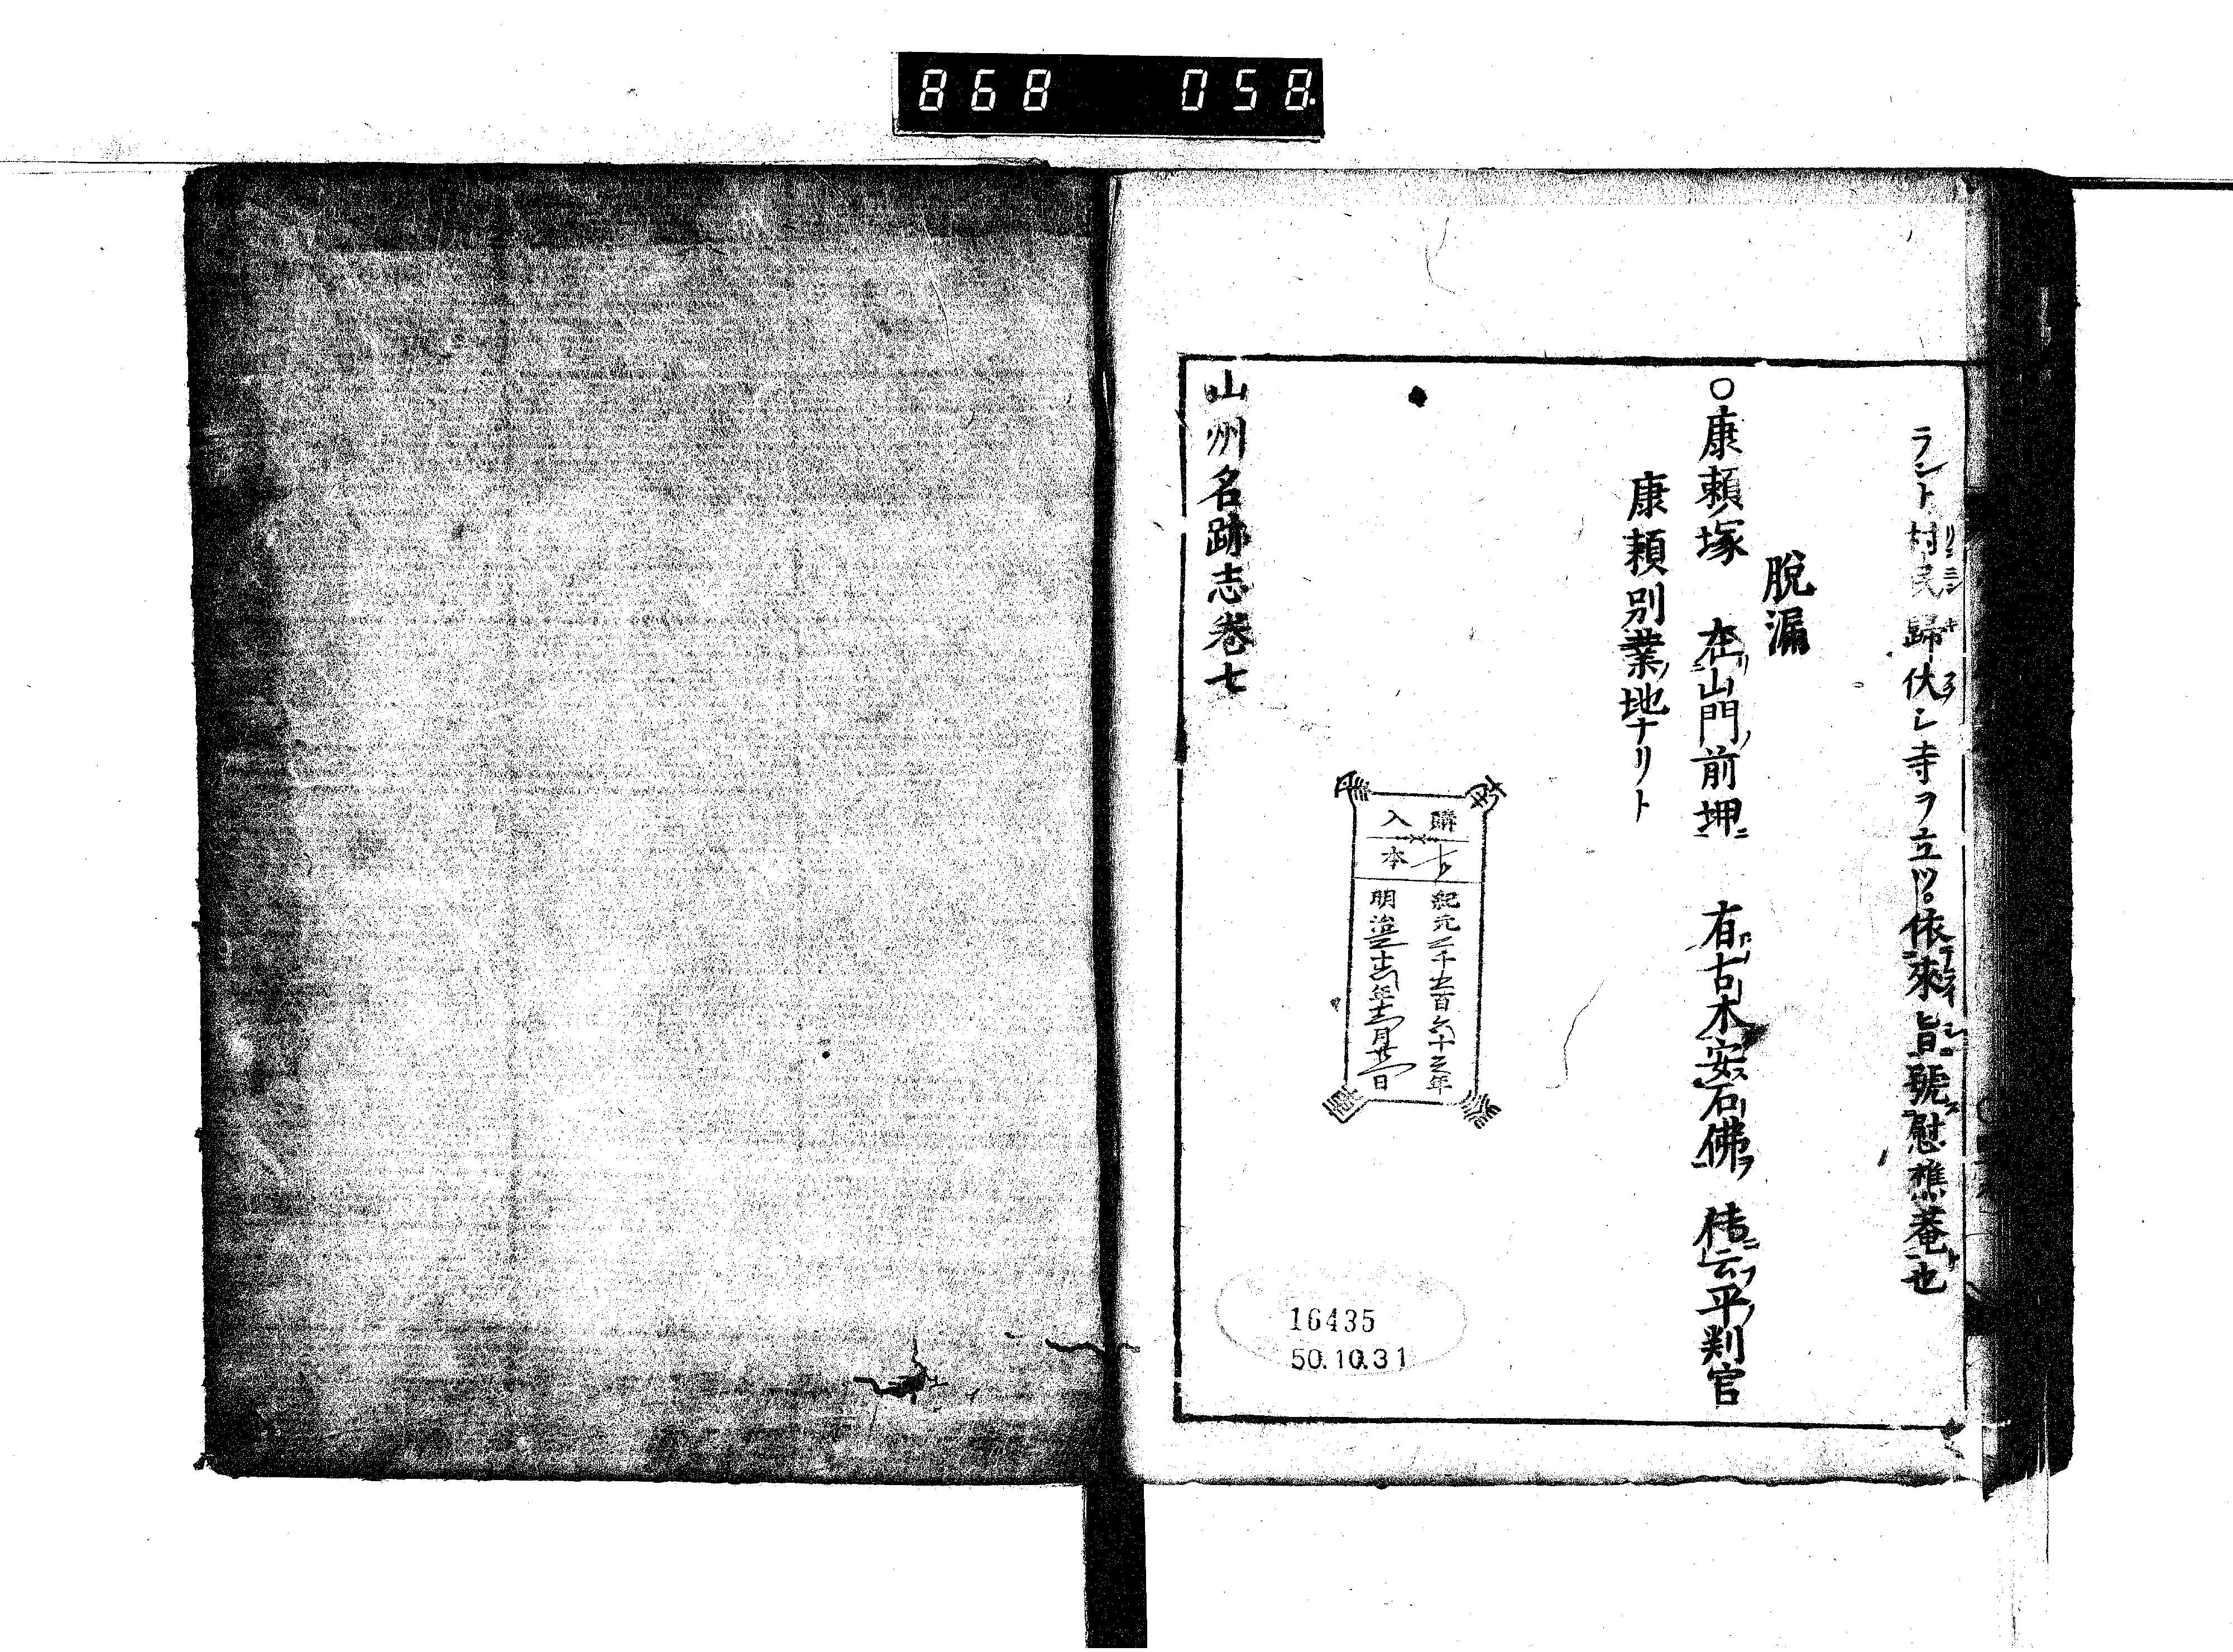 868 058.
ラント村民歸伏シ寺ヲ立ツ。依來旨號慰樵菴也
脫漏
○康頼塚 在山門前堺 有古木安石佛 傳云平判官
康頼別業地ナリト
購入
本
紀元二千五百六十三年
明治三十六年十二月廿一日
16435
50.10.31
山州名跡志卷七